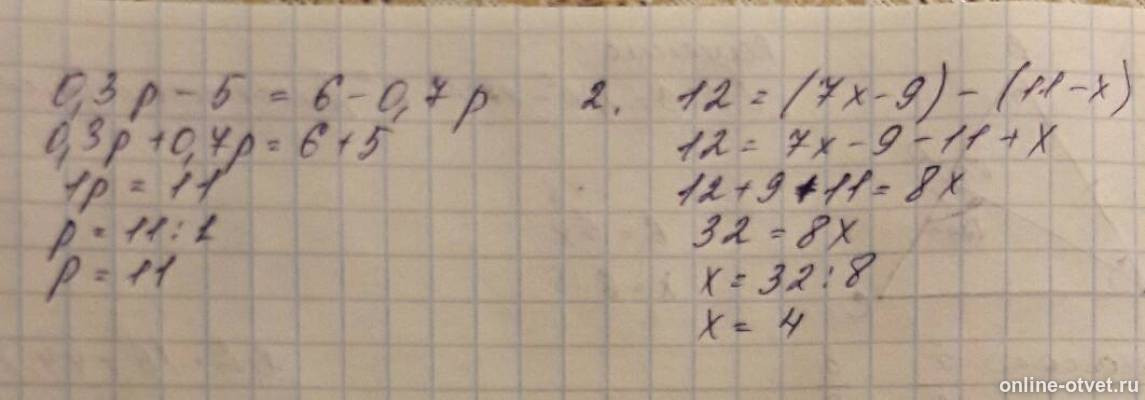 0,3p - 5 = 6 - 0,7p
0,3p + 0,7p = 6 + 5
1p = 11
p = 11 : 1
p = 11
2. 12 = (7x - 9) - (11 - x)
12 = 7x - 9 - 11 + x
12 + 9 + 11 = 8x
32 = 8x
x = 32 : 8
x = 4
online-otvet.ru